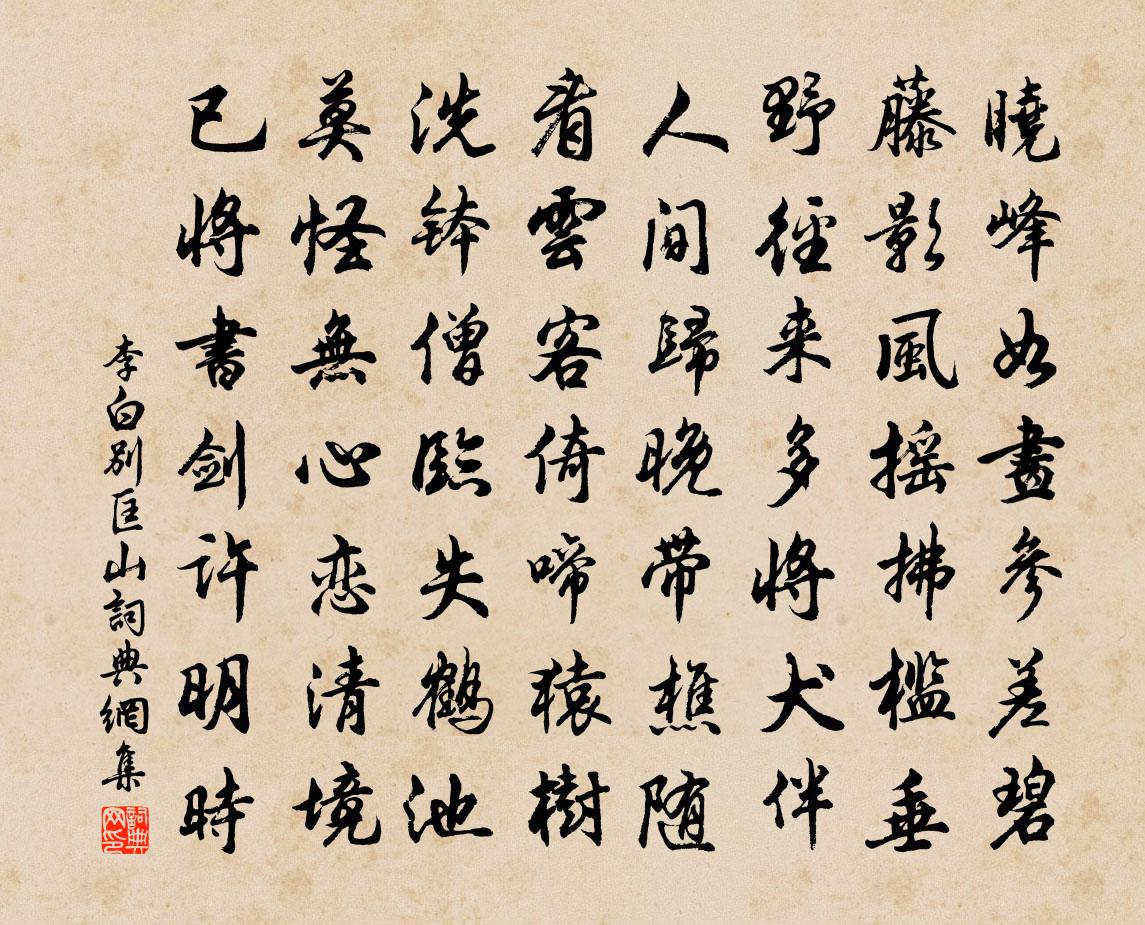 曉峰如畫參差碧
藤影風摇拂檻垂
野徑来多將犬伴
人间歸晚带樵随
看雲客倚啼猿樹
洗鉢僧臨失鶴池
莫怪無心恋清境
已將書劍許明時
李白別匡山詞典網集
詞典网印